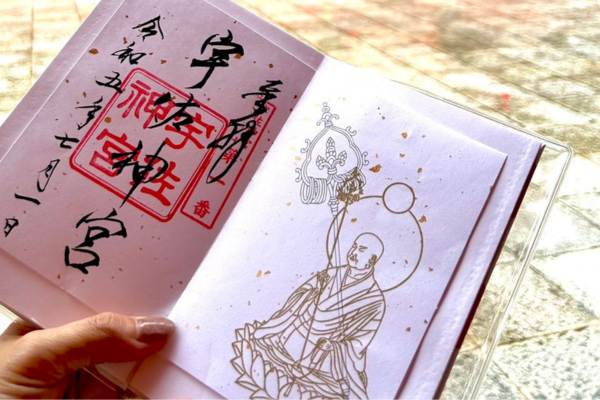 奉拝
宇佐神宮
令和五年七月一日
宇佐
神宮
第一番